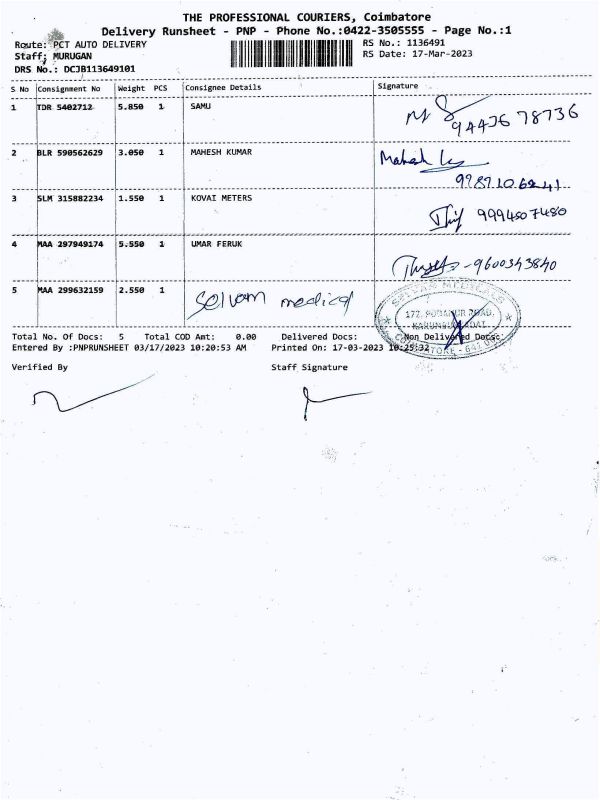 THE PROFESSIONAL COURIERS, Coimbatore
Delivery Runsheet - PNP - Phone No.:0422-3505555 - Page No.:1
Route: PCT AUTO DELIVERY
RS No.: 1136491
Staff: MURUGAN
RS Date: 17-Mar-2023
DRS No.: DCJB113649101
S No Consignment No Weight PCS Consignee Details Signature
1 TDR 5402712 5.850 1 SAMU
9443678736
2 BLR 590562629 3.050 1 MAHESH KUMAR
Mahesh
3 SLM 315882234 1.550 1 KOVAI METERS
9994507480
4 MAA 297949174 5.550 1 UMAR FERUK
-9600343840
5 MAA 299632159 2.550 1 Selvam medical
SELVAM MEDICALS
177, PODANUR ROAD,
Total No. Of Docs: 5 Total COD Amt: 0.00 Delivered Docs: Non Delivered Docs:
Entered By :PNPRUNSHEET 03/17/2023 10:20:53 AM Printed On: 17-03-2023 10:25:32
COIMBATORE
Verified By Staff Signature